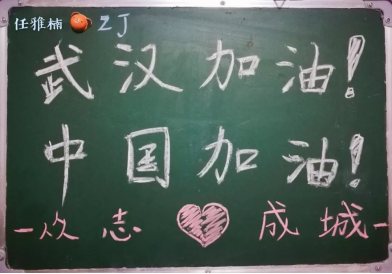 任雅楠 ZJ
武汉加油!
中国加油!
众志成城